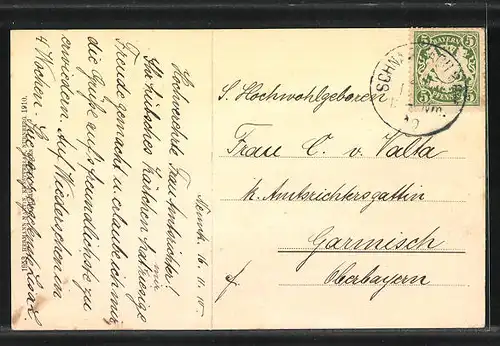 Münch. 16. 11. 10.
Hochverehrte Frau Amtsrichter!
Ihr hübsches Kärtchen hat mir riesige
Freude gemacht u. erlaube ich mir
die Grüße aufs freundlichste zu
erwiedern. Auf Wiedersehen in
4 Wochen.
BAYERN
5 5
5 5
S. Hochwohlgeboren
Frau C. v. Valta
k. Amtsrichtersgattin
Garmisch
Oberbayern